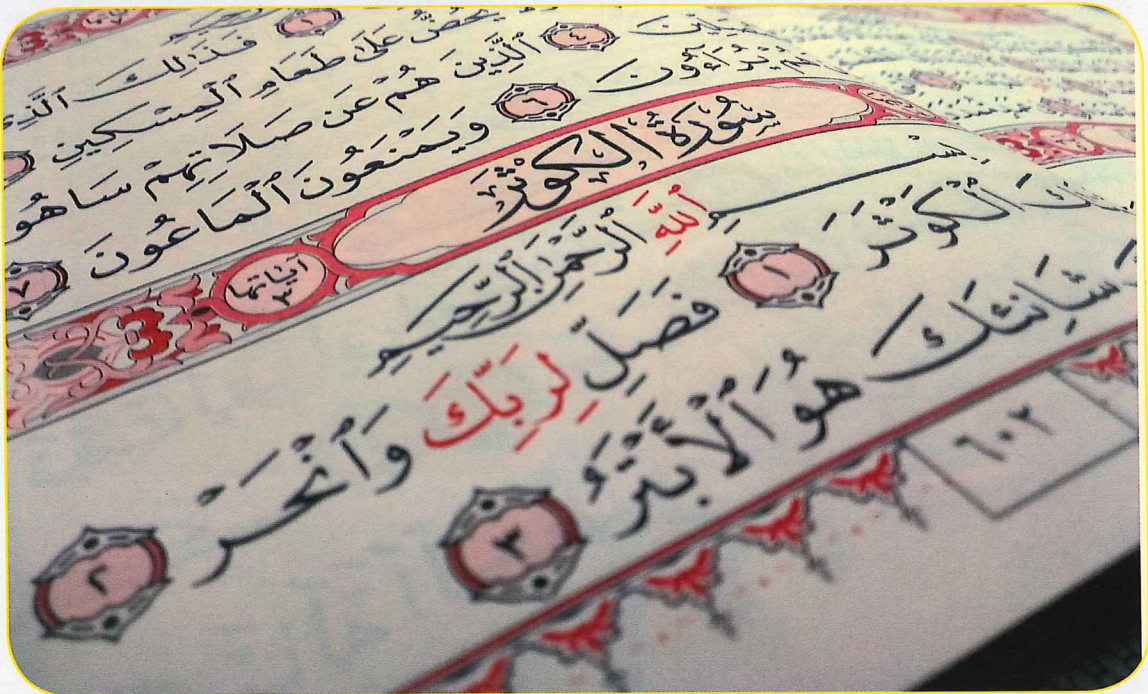 ١ فَذَٰلِكَ
يَحُضُّ عَلَىٰ طَعَامِ ٱلْمِسْكِينِ
٤ ٱلَّذِينَ هُمْ عَن صَلَاتِهِمْ
يُرَآءُونَ ٦ وَيَمْنَعُونَ ٱلْمَاعُونَ ٧
سُورَةُ الكَوْثَرِ آياتها ٣
بِسْمِ ٱللَّهِ ٱلرَّحْمَٰنِ ٱلرَّحِيمِ
ٱلْكَوْثَرَ ١ فَصَلِّ لِرَبِّكَ وَٱنْحَرْ ٢
شَانِئَكَ هُوَ ٱلْأَبْتَرُ ٣
٦٠٢